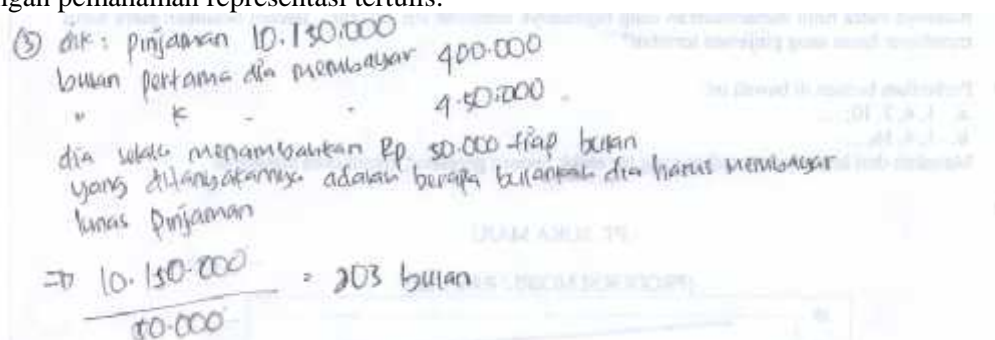 gan pemahaman representasi tertulis.
③ dik: pinjaman 10.150.000
bulan pertama dia membayar 400.000
" k - . 450.000 .
dia selalu menambahkan Rp. 50.000 tiap bulan
yang ditanyakannya adalah berapa bulankah dia harus membayar
lunas pinjaman
=> 10.150.000 = 203 bulan
50.000